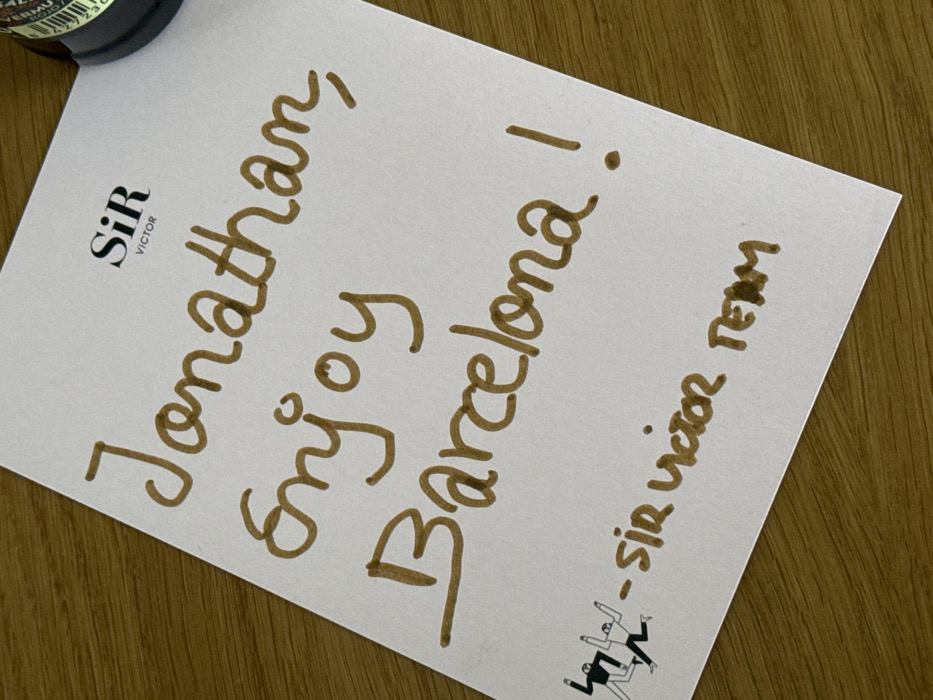 SiR
VICTOR
Jonatham,
Enjoy
Barcelona!
- SiR ViCTOR TEAM
VERMUT